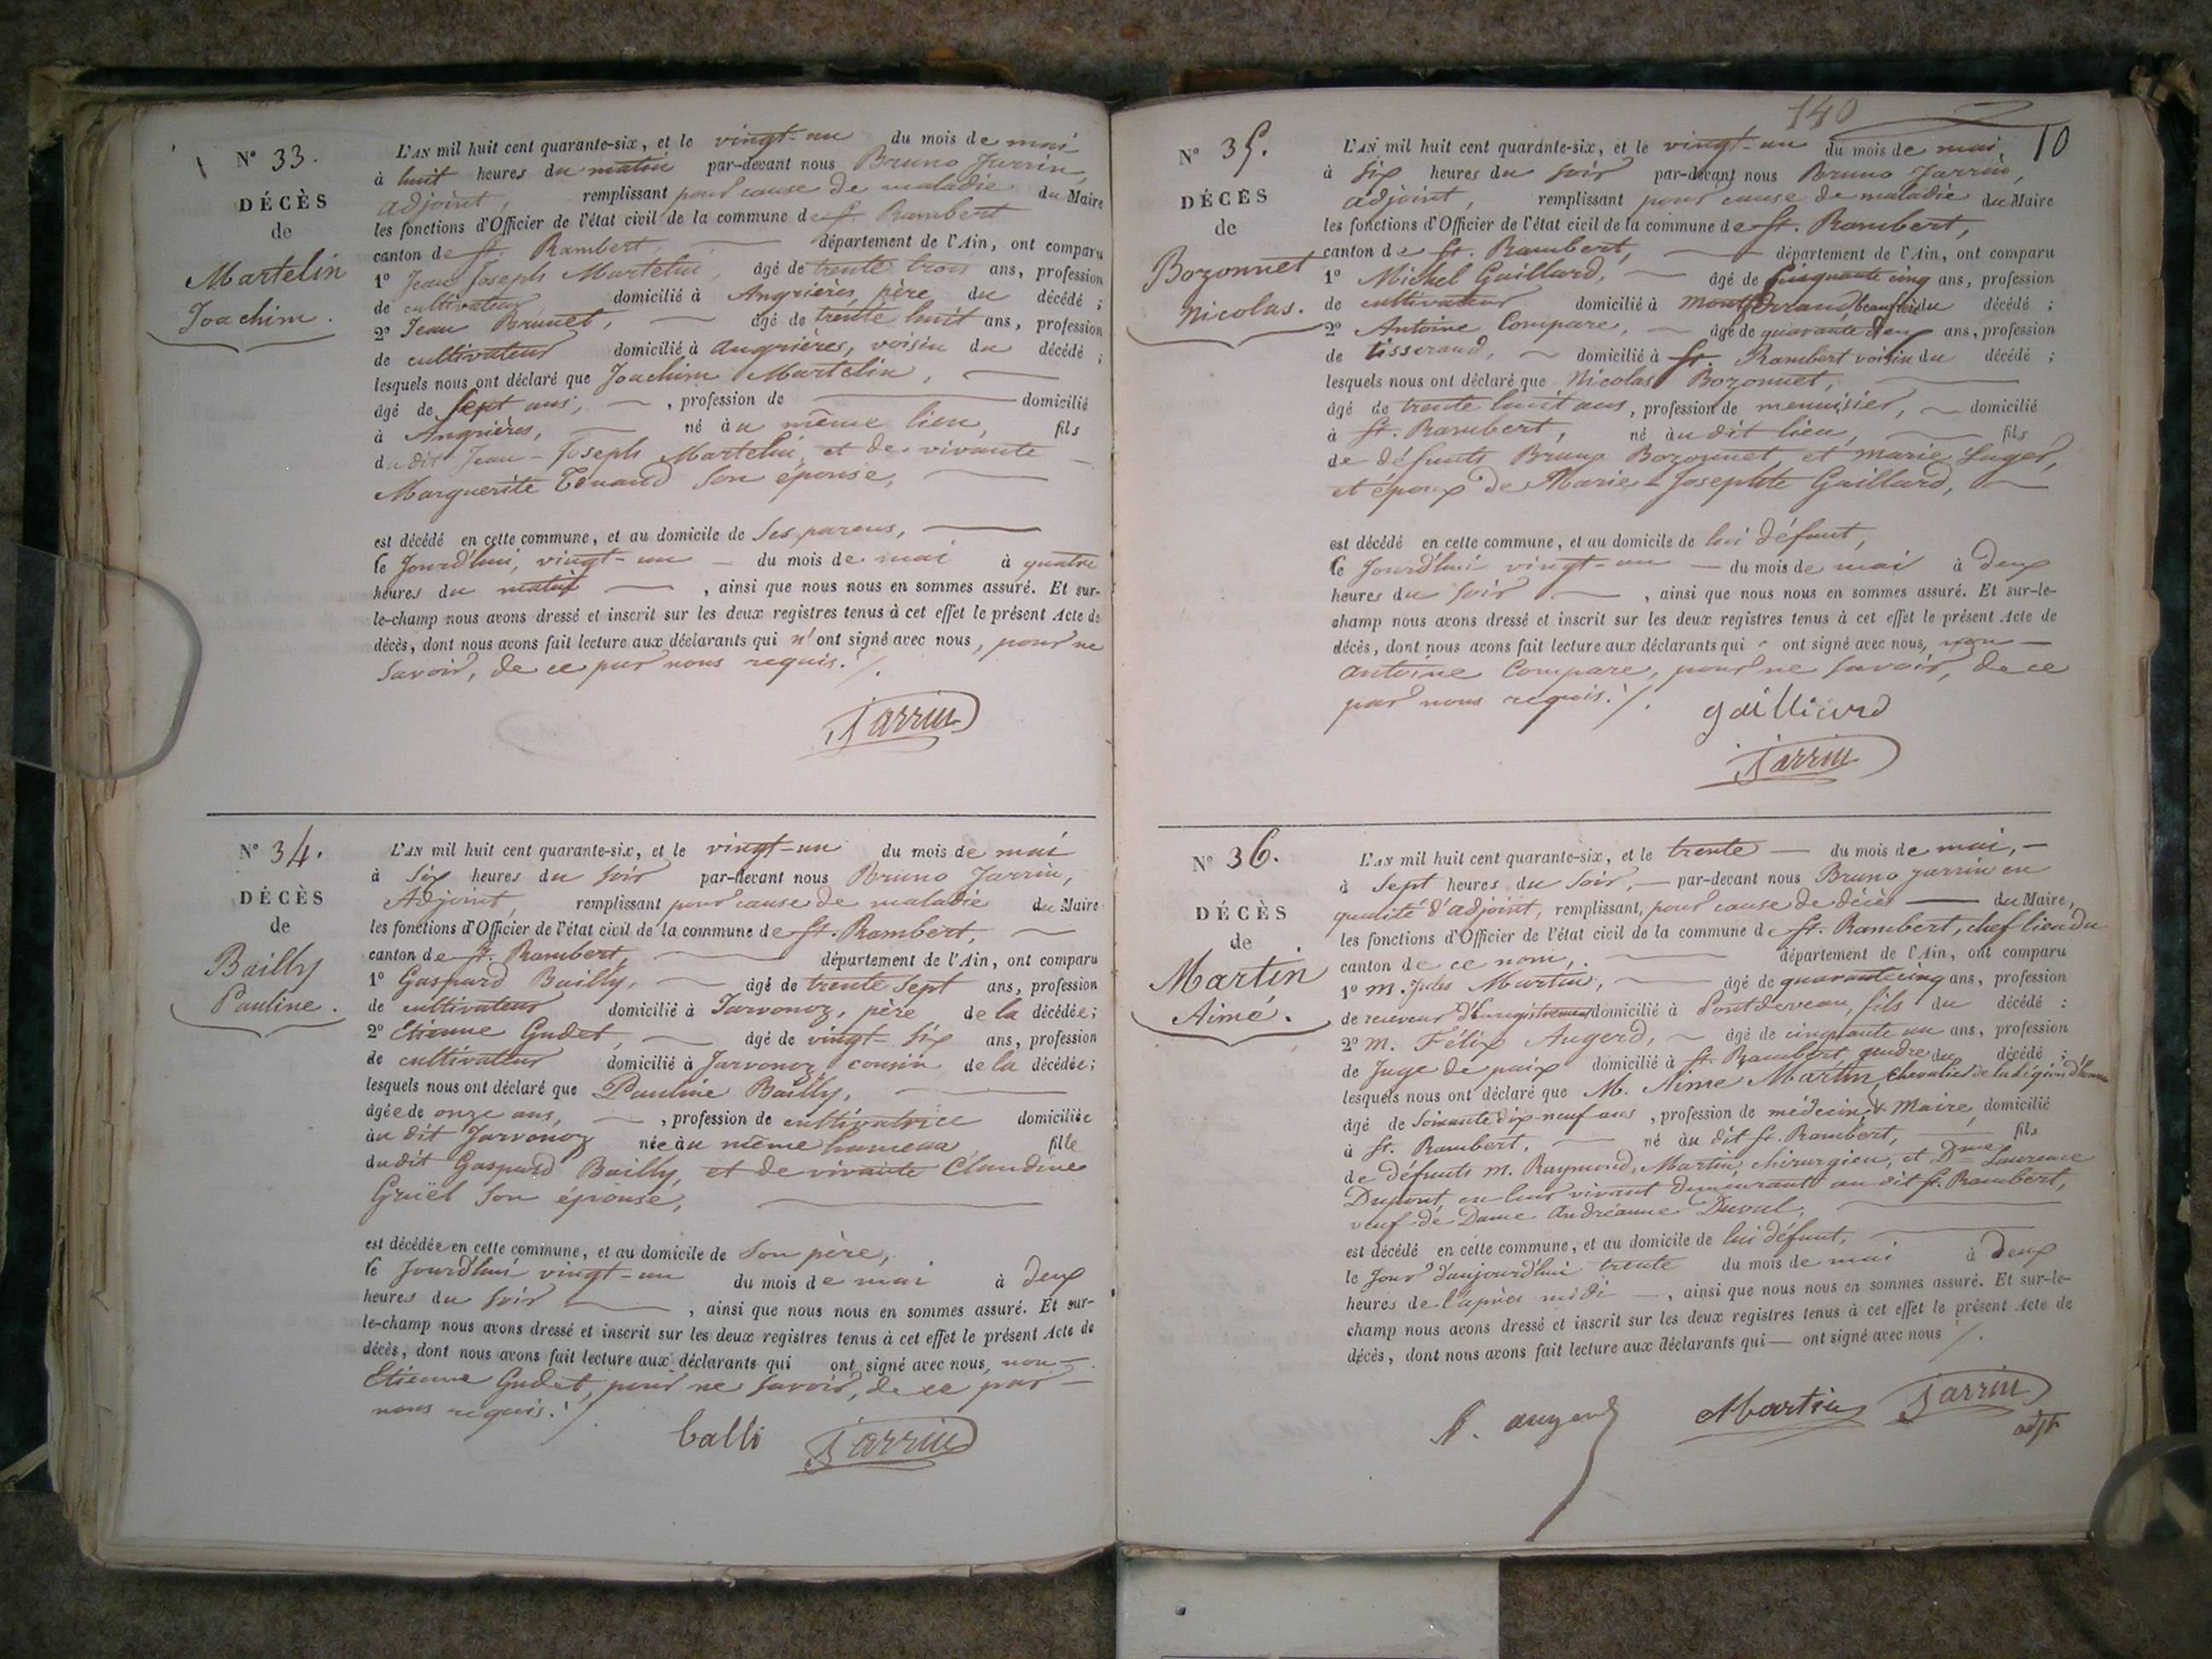 N° 33.
DÉCÈS
de
Martelin
Joachim.
L'AN mil huit cent quarante-six, et le vingt-un du mois de mai
à huit heures du matin par-devant nous Bruno Jarrin,
adjoint, remplissant pour cause de maladie du Maire
les fonctions d'Officier de l'état civil de la commune de St. Rambert
canton de St. Rambert, département de l'Ain, ont comparu
1° Jean Joseph Martelin, âgé de trente trois ans, profession
de cultivateur domicilié à Angrières, père du décédé ;
2° Jean Brunet, âgé de trente huit ans, profession
de cultivateur domicilié à Angrières, voisin du décédé ;
lesquels nous ont déclaré que Joachim Martelin,
âgé de sept ans, , profession de domicilié
à Angrières, né au même lieu, fils
dudit Jean-Joseph Martelin, et de vivante
Marguerite Tenand son épouse,
est décédé en cette commune, et au domicile de ses parens,
le jourd'hui, vingt-un du mois de mai à quatre
heures du matin , ainsi que nous nous en sommes assuré. Et sur-
le-champ nous avons dressé et inscrit sur les deux registres tenus à cet effet le présent Acte de
décès, dont nous avons fait lecture aux déclarants qui n'ont signé avec nous, pour ne
savoir, de ce par nous requis./.
Jarrin
N° 34.
DÉCÈS
de
Bailly
Pauline.
L'AN mil huit cent quarante-six, et le vingt-un du mois de mai
à six heures du soir par-devant nous Bruno Jarrin,
Adjoint, remplissant pour cause de maladie du Maire
les fonctions d'Officier de l'état civil de la commune de St. Rambert,
canton de St. Rambert, département de l'Ain, ont comparu
1° Gaspard Bailly, âgé de trente sept ans, profession
de cultivateur domicilié à Jarvonoz, père de la décédée;
2° Etienne Gudet, âgé de vingt-six ans, profession
de cultivateur domicilié à Jarvonoz, cousin de la décédée;
lesquels nous ont déclaré que Pauline Bailly,
âgée de onze ans, , profession de cultivatrice domiciliée
au dit Jarvonoz née au même hameau fille
dudit Gaspard Bailly, et de vivante Claudine
Gruël son épouse,
est décédée en cette commune, et au domicile de son père,
le jourd'hui vingt-un du mois de mai à deux
heures du soir , ainsi que nous nous en sommes assuré. Et sur-
le-champ nous avons dressé et inscrit sur les deux registres tenus à cet effet le présent Acte de
décès, dont nous avons fait lecture aux déclarants qui ont signé avec nous, non
Etienne Gudet, pour ne savoir, de ce par
nous requis./.
balli Jarrin
140
10
N° 35.
DÉCÈS
de
Bozonnet
Nicolas.
L'AN mil huit cent quarante-six, et le vingt-un du mois de mai
à six heures du soir par-devant nous Bruno Jarrin,
adjoint, remplissant pour cause de maladie du Maire
les fonctions d'Officier de l'état civil de la commune de St. Rambert,
canton de St. Rambert, département de l'Ain, ont comparu
1° Michel Gaillard, âgé de cinquante cinq ans, profession
de cultivateur domicilié à Montferrand, beau frère du décédé ;
2° Antoine Compare, âgé de quarante deux ans, profession
de tisserand, domicilié à St. Rambert voisin du décédé ;
lesquels nous ont déclaré que Nicolas Bozonnet,
âgé de trente huit ans, profession de menuisier, domicilié
à St. Rambert, né au dit lieu, fils
de défunts Bruno Bozonnet et Marie Luger,
et époux de Marie-Josephte Gaillard,
est décédé en cette commune, et au domicile de lui défunt,
le jourd'hui vingt-un du mois de mai à deux
heures du soir , ainsi que nous nous en sommes assuré. Et sur-le-
champ nous avons dressé et inscrit sur les deux registres tenus à cet effet le présent Acte de
décès, dont nous avons fait lecture aux déclarants qui ont signé avec nous, non
Antoine Compare, pour ne savoir, de ce
par nous requis./.
gailliard
Jarrin
N° 36.
DÉCÈS
de
Martin
Aimé.
L'AN mil huit cent quarante-six, et le trente du mois de mai,
à sept heures du soir, par-devant nous Bruno Jarrin en
qualité d'adjoint, remplissant, pour cause de décès du Maire,
les fonctions d'Officier de l'état civil de la commune de St. Rambert, chef lieu du
canton de ce nom, département de l'Ain, ont comparu
1° M. Jules Martin, âgé de quarante cinq ans, profession
de receveur d'Enregistrement domicilié à Pontdeveau, fils du décédé ;
2° M. Félix Augerd, âgé de cinquante un ans, profession
de Juge de paix domicilié à St. Rambert, gendre du décédé ;
lesquels nous ont déclaré que M. Aimé Martin, Chevalier de la Légion d'honneur
âgé de soixante dix neuf ans , profession de médecin, & Maire, domicilié
à St. Rambert, né au dit St. Rambert, fils
de défunts M. Raymond Martin, chirurgien, et Dme Laurence
Dupont, en leur vivant demeurant au dit St. Rambert,
veuf de Dame Andréanne Duval,
est décédé en cette commune, et au domicile de lui défunt,
le jour d'aujourd'hui trente du mois de mai à deux
heures de l'après midi , ainsi que nous nous en sommes assuré. Et sur-le-
champ nous avons dressé et inscrit sur les deux registres tenus à cet effet le présent Acte de
décès, dont nous avons fait lecture aux déclarants qui ont signé avec nous /.
f. augerd Martin Jarrin
adjt